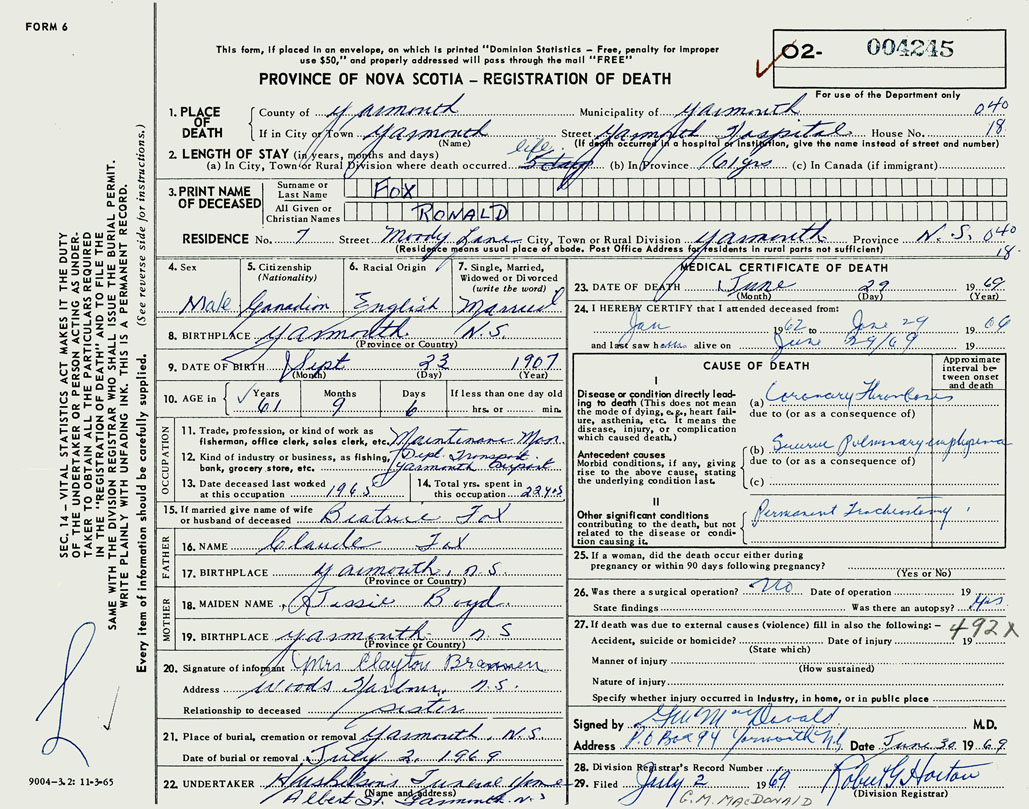 FORM 6
This form, if placed in an envelope, on which is printed "Dominion Statistics – Free, penalty for improper
use $50," and properly addressed will pass through the mail "FREE"
PROVINCE OF NOVA SCOTIA – REGISTRATION OF DEATH
02- 004245
For use of the Department only
1. PLACE OF DEATH
County of Yarmouth Municipality of Yarmouth 040
If in City or Town Yarmouth Street Yarmouth Hospital House No. 18
(Name) (If death occurred in a hospital or institution, give the name instead of street and number)
2. LENGTH OF STAY (in years, months and days)
(a) In City, Town or Rural Division where death occurred life (b) In Province 61 yrs (c) In Canada (if immigrant)
3. PRINT NAME OF DECEASED
Surname or Last Name FOX
All Given or Christian Names RONALD
RESIDENCE No. 7 Street Moody Lane City, Town or Rural Division Yarmouth Province N.S. 040
(Residence means usual place of abode. Post Office Address for residents in rural parts not sufficient) 18
4. Sex Male
5. Citizenship (Nationality) Canadian
6. Racial Origin English
7. Single, Married, Widowed or Divorced (write the word) Married
8. BIRTHPLACE Yarmouth N.S.
(Province or Country)
9. DATE OF BIRTH Sept 23 1907
(Month) (Day) (Year)
10. AGE in Years 61 Months 9 Days 6 If less than one day old hrs. or min.
OCCUPATION
11. Trade, profession, or kind of work as fisherman, office clerk, sales clerk, etc. Maintenane Man
12. Kind of industry or business, as fishing, bank, grocery store, etc. Dept. Transport Yarmouth Airport
13. Date deceased last worked at this occupation 1965
14. Total yrs. spent in this occupation 22 yrs
15. If married give name of wife or husband of deceased Beatrice Fox
FATHER
16. NAME Claude Fox
17. BIRTHPLACE Yarmouth, N.S.
(Province or Country)
MOTHER
18. MAIDEN NAME Jessie Boyd
19. BIRTHPLACE Yarmouth N.S
(Province or Country)
20. Signature of informant Mrs Clayton Brannen
Address Woods Harbour, N.S.
Relationship to deceased sister
21. Place of burial, cremation or removal Yarmouth, N.S.
Date of burial or removal July 2, 1969
22. UNDERTAKER Funeral Home
(Name and address)
Albert St. Yarmouth N.S
MEDICAL CERTIFICATE OF DEATH
23. DATE OF DEATH June 29 1969
(Month) (Day) (Year)
24. I HEREBY CERTIFY that I attended deceased from:
Jan 1962 to June 29 19
and last saw alive on June 29/69 19
CAUSE OF DEATH
Approximate interval between onset and death
I
Disease or condition directly leading to death (This does not mean the mode of dying, e.g., heart failure, asthenia, etc. It means the disease, injury, or complication which caused death.)
(a) Coronary Thrombosis
due to (or as a consequence of)
Antecedent causes
Morbid conditions, if any, giving rise to the above cause, stating the underlying condition last.
(b) Severe Pulmonary emphysema
due to (or as a consequence of)
(c)
II
Other significant conditions contributing to the death, but not related to the disease or condition causing it.
Permanent Tracheostomy
25. If a woman, did the death occur either during
pregnancy or within 90 days following pregnancy?
(Yes or No)
26. Was there a surgical operation? No Date of operation 19
State findings Was there an autopsy? Yes
27. If death was due to external causes (violence) fill in also the following: – 492X
Accident, suicide or homicide? Date of injury 19
(State which)
Manner of injury
(How sustained)
Nature of injury
Specify whether injury occurred in Industry, in home, or in public place
Signed by G M MacDonald M.D.
Address P.O Box 94 Yarmouth N.S. Date June 30 1969
28. Division Registrar's Record Number
29. Filed July 2 1969 Robert G Horton
(Division Registrar)
G.M. MACDONALD
SEC. 14 – VITAL STATISTICS ACT MAKES IT THE DUTY
OF THE UNDERTAKER OR PERSON ACTING AS UNDERTAKER
TO OBTAIN ALL THE PARTICULARS REQUIRED
IN THE "REGISTRATION OF DEATH" AND TO FILE THE
SAME WITH THE DIVISION REGISTRAR WHO SHALL ISSUE THE BURIAL PERMIT.
WRITE PLAINLY WITH UNFADING INK. THIS IS A PERMANENT RECORD.
Every item of information should be carefully supplied. (See reverse side for instructions.)
9004–3.2: 11-3-65